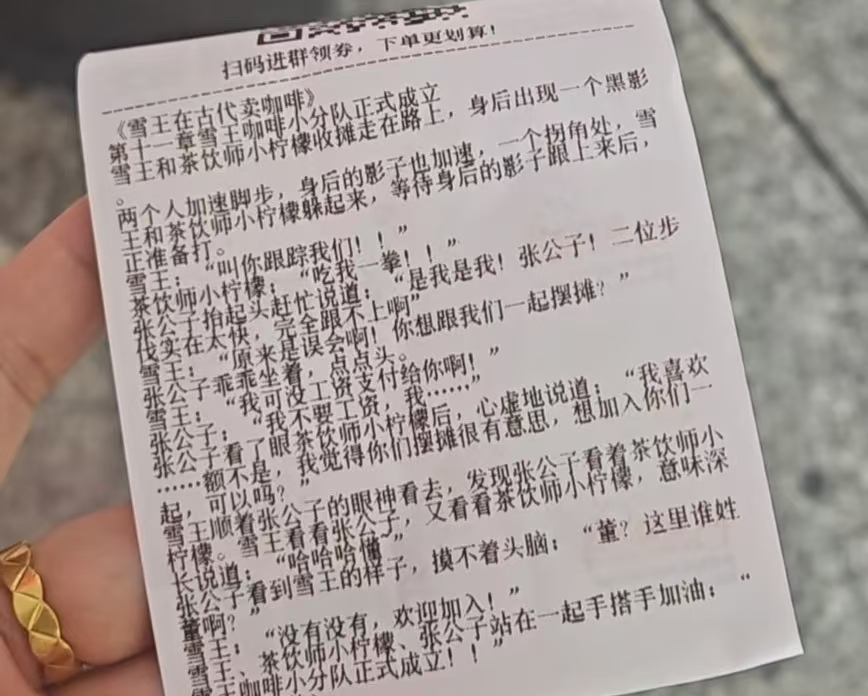 扫码进群领券，下单更划算！
《雪王在古代卖咖啡》
第十一章雪王咖啡小分队正式成立
雪王和茶饮师小柠檬收摊走在路上，身后出现一个黑影
。
两个人加速脚步，身后的影子也加速，一个拐角处，雪
王和茶饮师小柠檬躲起来，等待身后的影子跟上来后，
正准备打。
雪王：“叫你跟踪我们！！”
茶饮师小柠檬：“吃我一拳！！”
张公子抬起头赶忙说道：“是我是我！张公子！二位步
伐实在太快，完全跟不上啊”
雪王：“原来是误会啊！你想跟我们一起摆摊？”
张公子乖乖坐着，点点头。
雪王：“我可没工资支付给你啊！”
张公子：“我不要工资，我……”
张公子看了眼茶饮师小柠檬后，心虚地说道：“我喜欢
……额不是，我觉得你们摆摊很有意思，想加入你们一
起，可以吗？”
雪王顺着张公子的眼神看去，发现张公子看着茶饮师小
柠檬。雪王看看张公子，又看看茶饮师小柠檬，意味深
长说道：“哈哈哈懂”
张公子看到雪王的样子，摸不着头脑：“董？这里谁姓
董啊？”
雪王：“没有没有，欢迎加入！”
雪王、茶饮师小柠檬、张公子站在一起手搭手加油：“
雪王咖啡小分队正式成立！！”